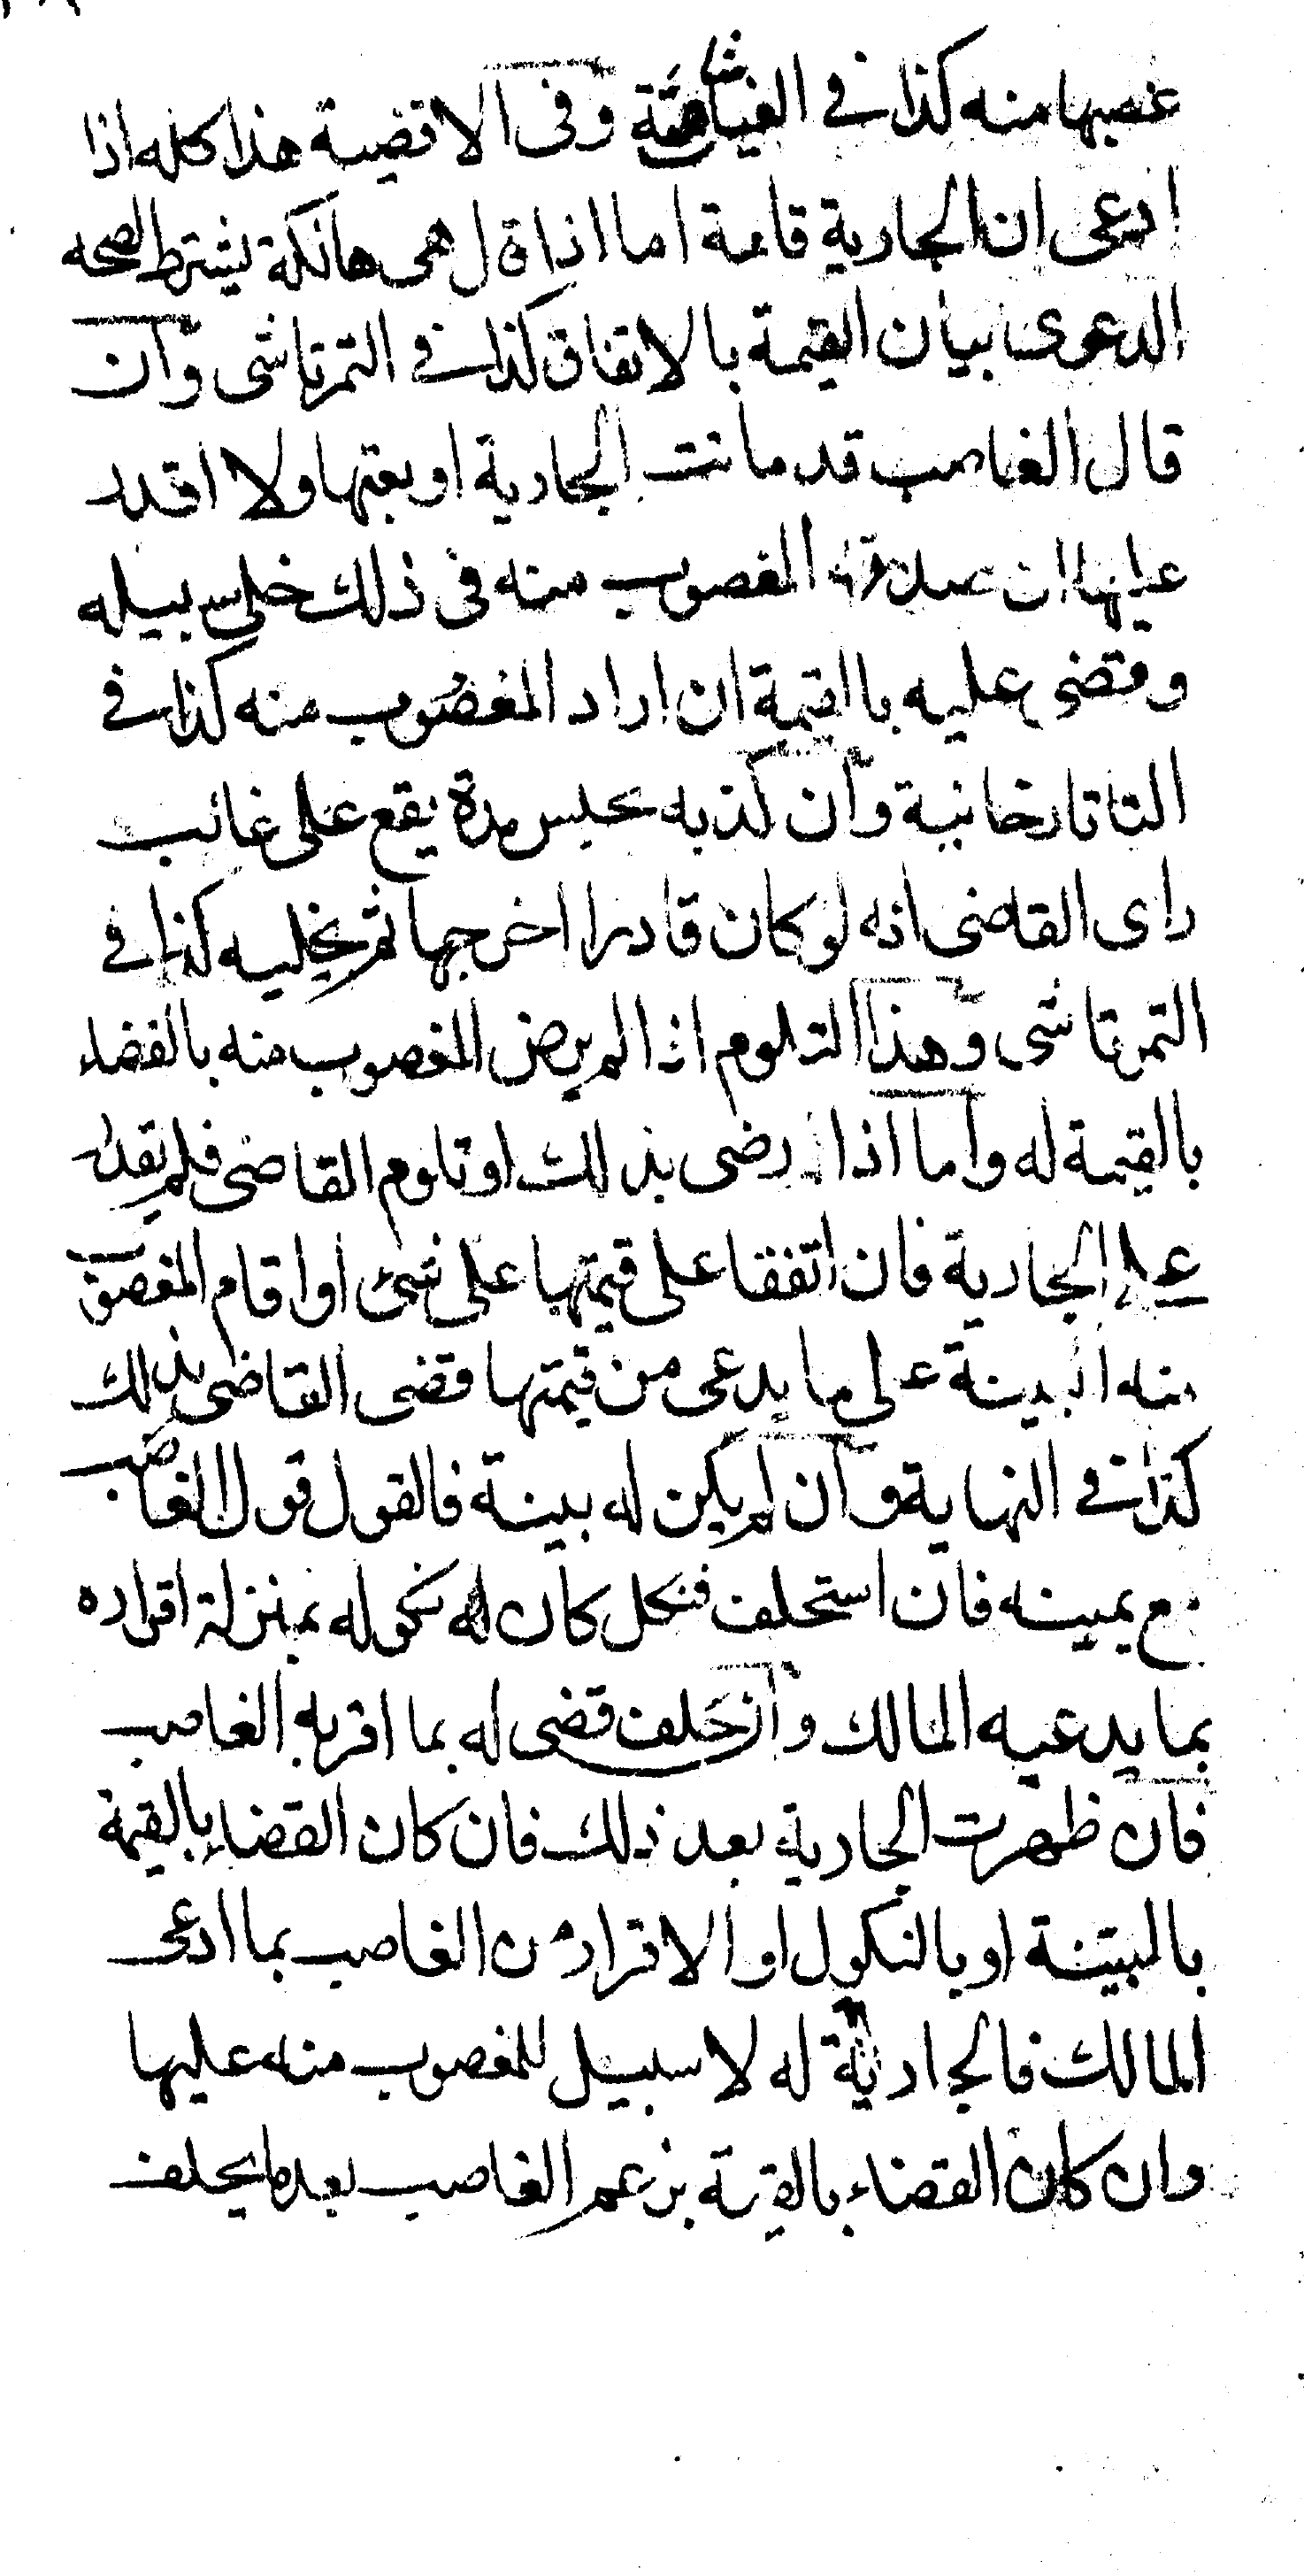 غصبها منه كذا في الغياثية وفى الاقضية هذا كله اذا
ادعى ان الجارية قائمة اما اذا قال هى هالكة يشترط لصحه
الدعوى بيان القيمة بالاتفاق كذا في التمرتاشى وان
قال الغاصب قد ماتت الجارية او بعتها ولا اقدر
عليها ان صدقه المغصوب منه فى ذلك خلى سبيله
وقضى عليه بالقيمة ان اراد المغصوب منه كذا في
التاتارخانية وان كذبه يحبس مدة يقع على غالب
راى القاضى انه لو كان قادرا اخرجها ثم يخليه كذا في
التمرتاشى وهذا التلوم اذا لم يرض المغصوب منه بالقضاء
بالقيمة له واما اذا رضى بذلك او تلوم القاضى فلم يقدر
على الجارية فان اتفقا على قيمتها على شئ او اقام المغصوب
منه البينة على ما يدعى من قيمتها قضى القاضى بذلك
كذا في النهاية وان لم يكن له بينة فالقول قول الغاصب
مع يمينه فان استحلف فنكل كان له نكوله بمنزلة اقراره
بما يدعيه المالك وان حلف قضى له بما اقر به الغاصب
فان ظهرت الجارية بعد ذلك فان كان القضاء بالقيمة
بالبينة او بالنكول او الاقرار من الغاصب بما ادعى
المالك فالجارية له لا سبيل للمغصوب منه عليها
وان كان القضاء بالقيمة بزعم الغاصب بعد ما يحلف